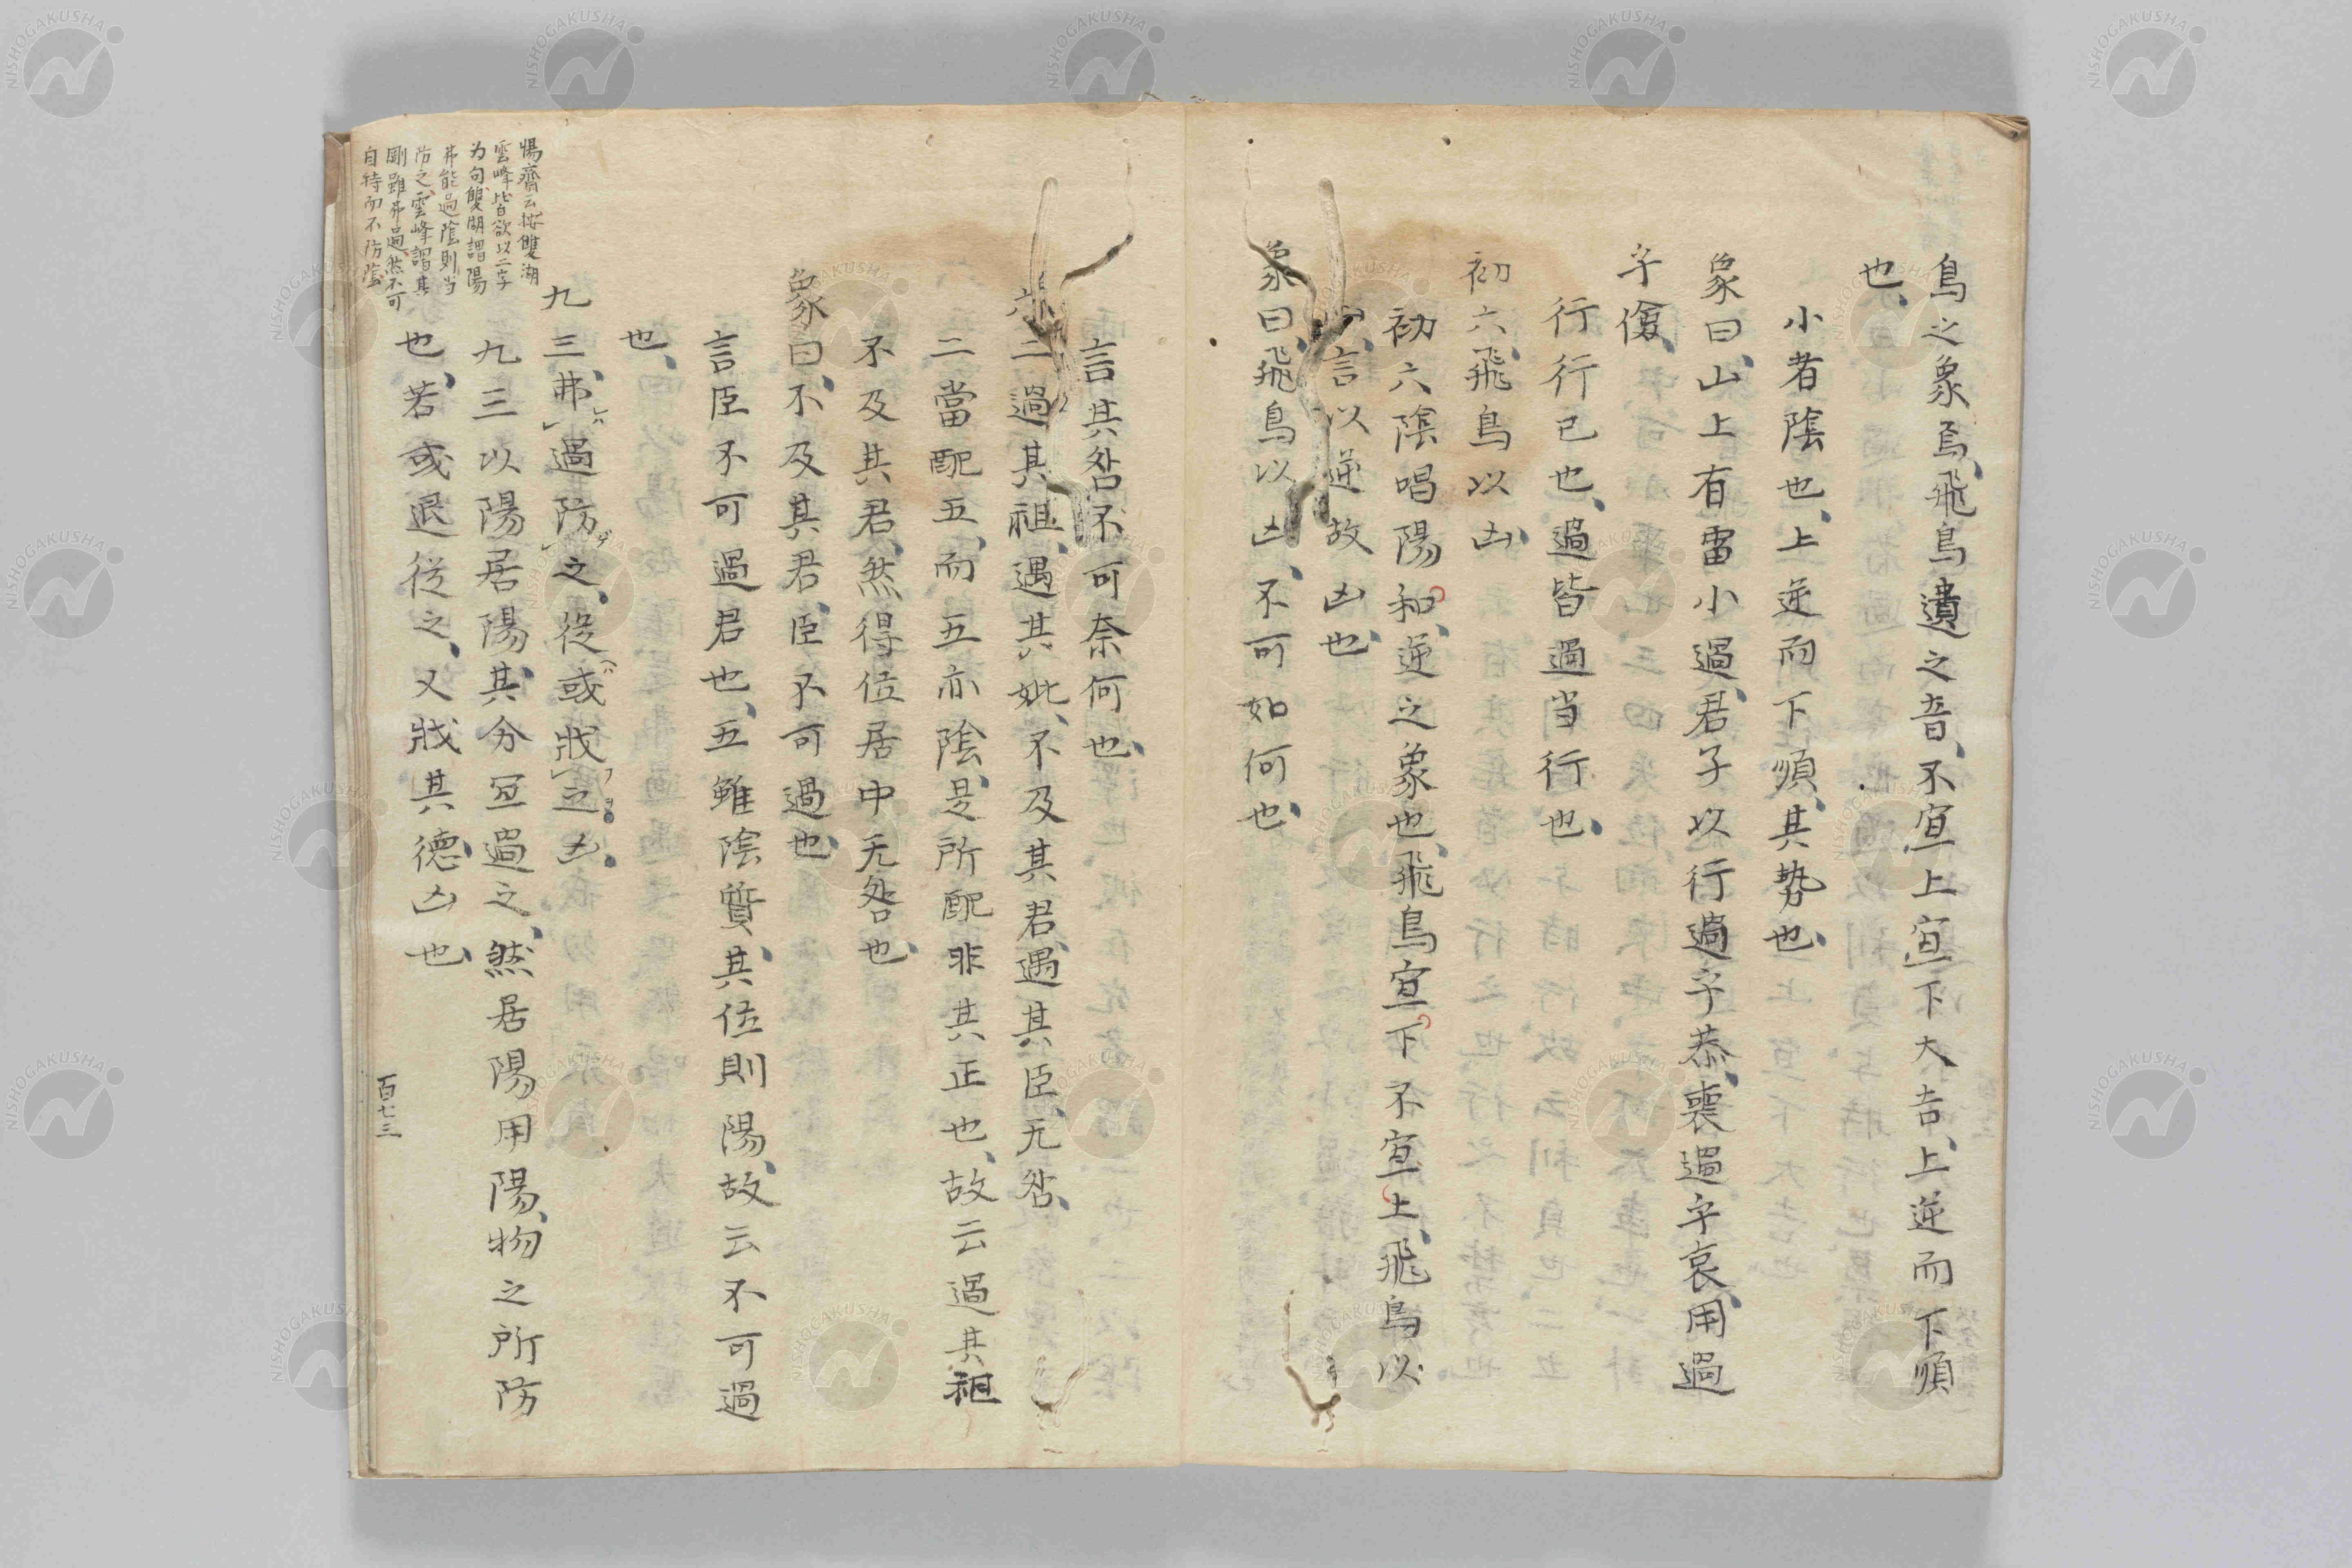 鳥之象焉、飛鳥遺之音、不宜上宜下大吉、上逆而下順
也、
小者陰也、上逆而下順、其勢也、
象曰、山上有雷小過、君子以行過乎恭、喪過乎哀、用過
乎儉、
行行己也、過皆過当行也、
初六、飛鳥以凶、
初六陰唱陽和、逆之象也、飛鳥宜下不宜上、飛鳥以
言以逆故凶也、
象曰、飛鳥以凶、不可如何也、
言其咎不可奈何也、
六二、過其祖、遇其妣、不及其君、遇其臣、无咎、
二當配五、而五亦陰、是所配非其正也、故云過其祖
不及其君、然得位居中无咎也、
象曰、不及其君、臣不可過也、
言臣不可過君也、五雖陰質、其位則陽、故云不可過
也、
九三、弗過防之、從或戕之、凶、
九三以陽居陽、其分宜過之、然居陽用陽、物之所防
也、若或退從之、又戕其德、凶也、
惕齋云按雙湖
雲峰皆欲以二字
为句雙湖謂陽
弗能過陰則当
防之雲峰謂其
剛雖弗過然不可
自恃而不防陰
百七三
NISHOGAKUSHA